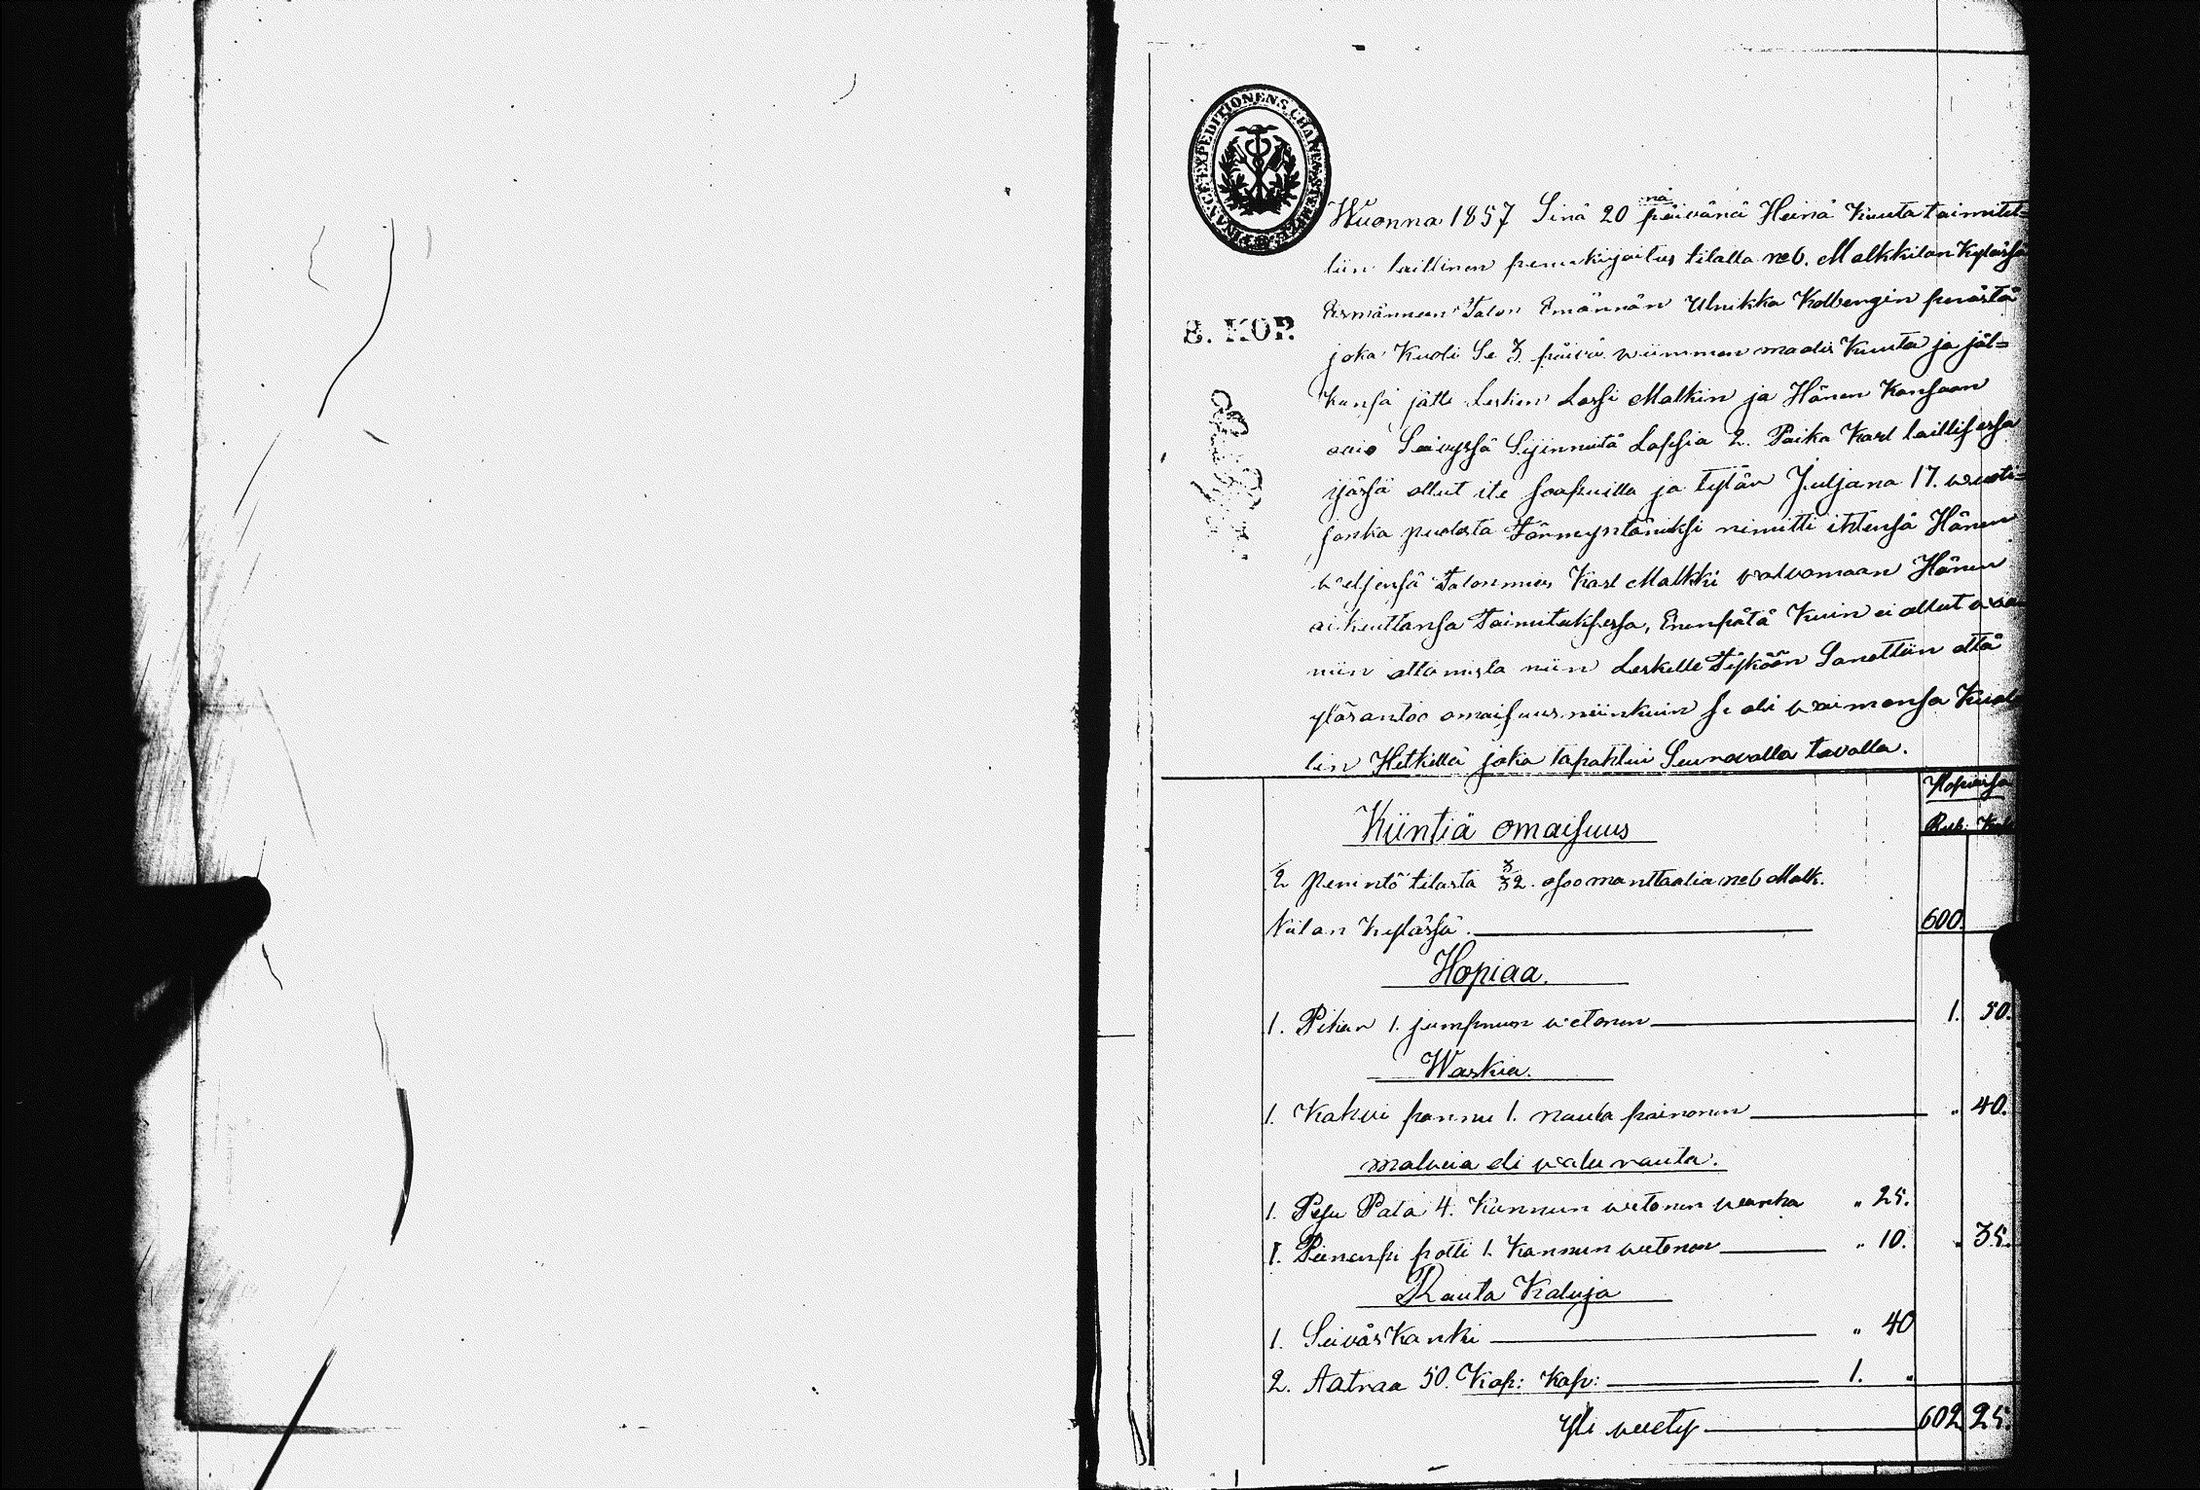 FINANCE-EXPEDITIONENS CHARTÆ-STEMPEL
8. KOP.
Wuonna 1857 Sinä 20 nä päivänä Heinä Kuuta taimitet=
tiin laillinen perunkirjoitus tilalla No 6. Malkkilan Kylässä
Talon Emännän Ulrikka Kolbengin perästä
joka Kuoli Se 3 päivä wiimmen maalis Kuuta ja jäl=
kensä jätti Lesken Lassi Malkin ja Hänen Kanssaan
awio Säädyssä Sijinneitä Lapsia 2. Poika Karl laillisessa
ijässä ollut ite saapuilla ja tytär Juljana 17. wuoti=
jonka puolesta Förmyntäriksi nimitti ittensä Hänen
weljensä Talonmies Karl Malkki valvomaan Hänen
oikeuttansa Taimituksessa, Enenpätä Kuin ei ollut
niin ottamista niin Leskelle Tykään Sanottiin että
ylösantoo omaisuus niinkuin se oli waimonsa Kuole
lin Hetkellä joka tapahtui Seuraavalla tavalla.
Hopiassa
Rub. Kop
Kiintiä omaisuus
1/2 perintö tilasta 3/32. osoo manttaalia No 6 Malk.
kiilan Kylässä. 600.
Hopiaa.
1. Pikar 1. jumprun wetonen 1. 50.
Waskia.
1. Kahvi pannu 1. nauta painonen " 40.
malmia eli walu rauta.
1. Pesu Pata 4. Kannun wetonen wanha " 25.
1. Piinensi potti 1. Kannun wetonen " 10. " 35.
Rauta Kaluja
1. Seiväs Kanki " 40
2. Aatraa 50. Kop: Kap: 1. "
Yli weety 602 25.